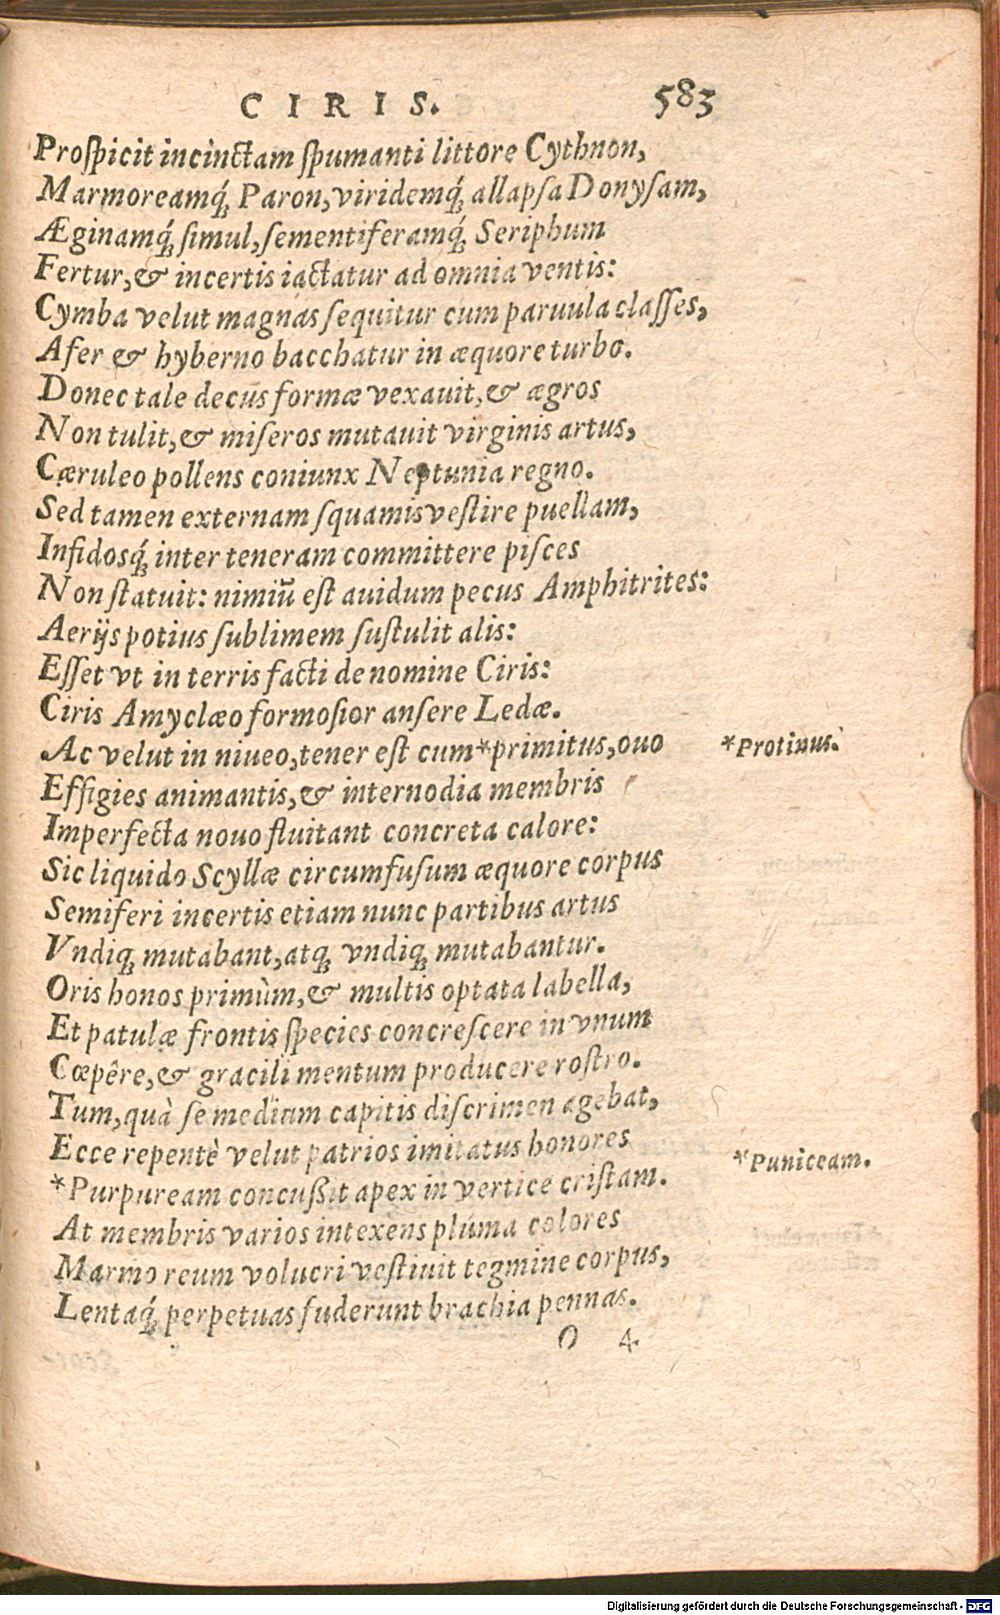 CIRIS. 583
Proſpicit incinctam ſpumanti littore Cythnon,
Marmoreamq́; Paron, viridemq́; allapſa Donyſam,
Æginamq́; ſimul, ſementiferamq́; Seriphum
Fertur, & incertis iactatur ad omnia ventis:
Cymba velut magnas ſequitur cum paruula claſſes,
Afer & hyberno bacchatur in æquore turbo.
Donec tale decus formæ vexauit, & ægros
Non tulit, & miſeros mutauit virginis artus,
Cæruleo pollens coniunx Neptunia regno.
Sed tamen externam ſquamis veſtire puellam,
Infidosq́; inter teneram committere piſces
Non ſtatuit: nimiū eſt auidum pecus Amphitrites:
Aerijs potius ſublimem ſuſtulit alis:
Eſſet vt in terris facti de nomine Ciris:
Ciris Amyclæo formoſior anſere Ledæ.
Ac velut in niueo, tener eſt cum *primitus, ouo *Protinus.
Effigies animantis, & internodia membris
Imperfecta nouo fluitant concreta calore:
Sic liquido Scyllæ circumfuſum æquore corpus
Semiferi incertis etiam nunc partibus artus
Vndiq; mutabant, atq; vndiq; mutabantur.
Oris honos primùm, & multis optata labella,
Et patulæ frontis ſpecies concreſcere in vnum
Cœpêre, & gracili mentum producere roſtro.
Tum, quà ſe medium capitis diſcrimen agebat,
Ecce repentè velut patrios imitatus honores
*Purpuream concußit apex in vertice criſtam. *Puniceam.
At membris varios intexens pluma colores
Marmoreum volucri veſtiuit tegmine corpus,
Lentaq́; perpetuas fuderunt brachia pennas.
O 4
Digitalisierung gefördert durch die Deutsche Forschungsgemeinschaft - DFG